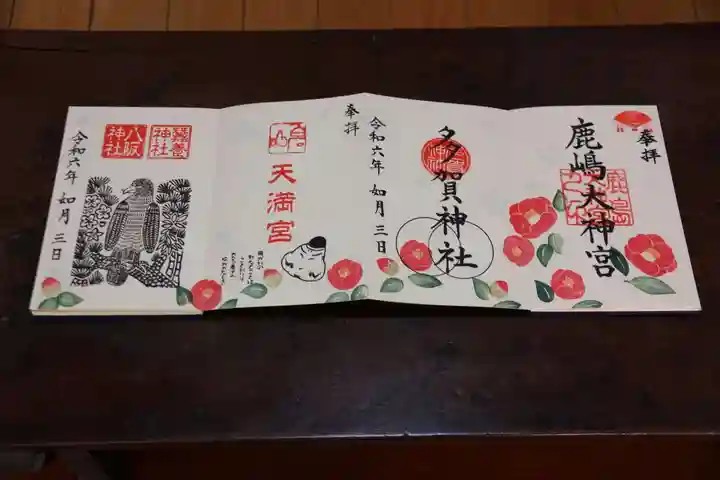 奉拝
鹿嶋大神宮
鹿島
令和六年 如月 三日
多賀神社
奉拝
天満宮
養蚕
神社
八阪
神社
令和六年 如月 三日